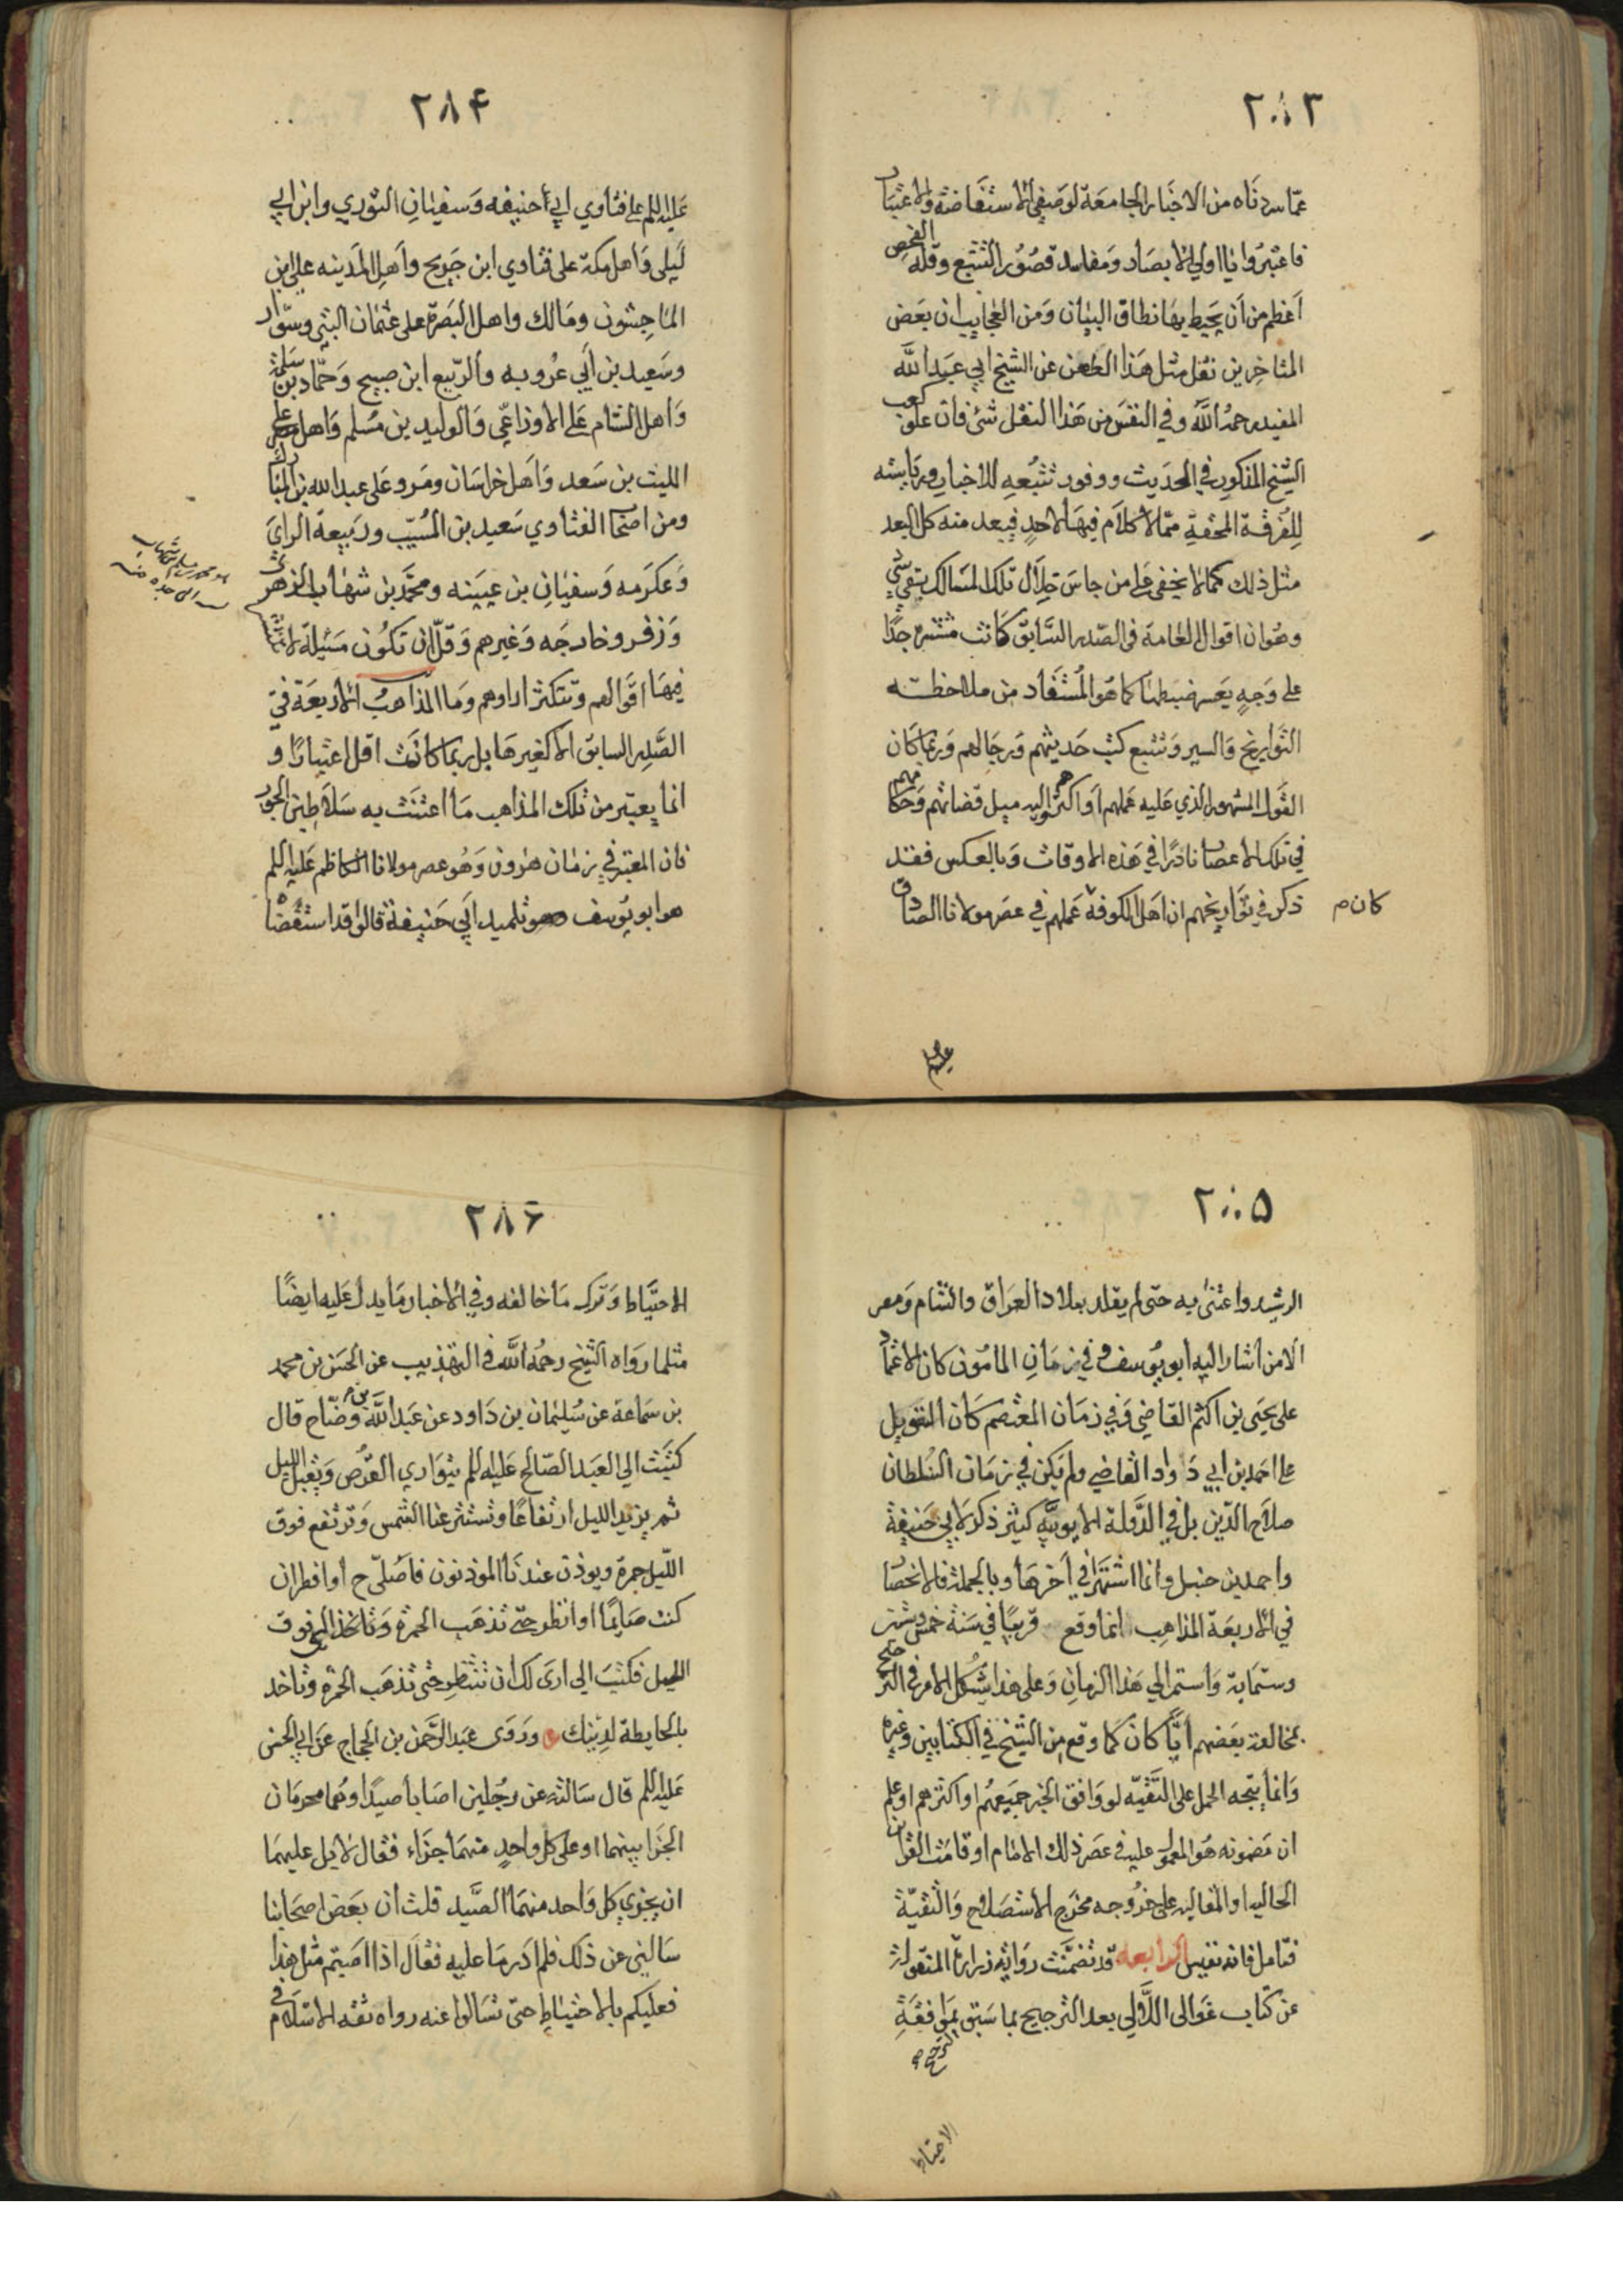 ٢٨٣
عمّا سردناه من الاخبار الجامعة لوصفي الاستفاضة والاعتبار
فاعتبروا يا اولي الابصار ومفاسد قصور التتبع وقلة الفحص
اعظم من ان يحيط بها نطاق البيان ومن العجايب ان بعض
المتاخرين نقل مثل هذا الطعن عن الشيخ ابي عبد الله
المفيد رحمه الله وفي النفس من هذا النقل شئ فان علو كعب
الشيخ المذكور في الحديث ووفور تتبعه للاخبار ورياسته
للفرقة المحقة ممّا لا كلام فيها لاحد فيبعد منه كل البعد
مثل ذلك كما لا يخفى على من جاس خلال تلك المسالك بقي شي
وهو ان اقوال العامة في الصدر السابق كانت منتشرة جدًا
على وجه يعسر ضبطها كما هو المستفاد من ملاحظة
التواريخ والسير وتتبع كتب حديثهم ورجالهم وربما كان
القول المشهور الذي عليه عملهم او اكثرهم واليه ميل قضاتهم وحكامهم
في تلك الاعصار نادرًا في هذه الاوقات وبالعكس فقد
ذكر في تواريخهم ان اهل الكوفة عملهم في عصر مولانا الصادق
كان م
عليه
٢٨۴
عليه السلم على فتاوي ابي حنيفه وسفيان الثوري وابن ابي
ليلى واهل مكة على فتاوي ابن جريح واهل المدينه على ابن
الماجشون ومالك واهل البصرة على عثمان البتي وسوّار
وسعيد بن أبي عروبه والربيع ابن صبيح وحمّاد بن سلمة
واهل الشام على الاوزاعي والوليد بن مسلم واهل مصر على
الليث بن سعد واهل خراسان ومرو على عبد الله بن المبارك
ومن اصحاب الفتاوي سعيد بن المسيّب وربيعة الراي
وعكرمه وسفيان بن عيينه ومحمّد بن شهاب الزهري
وزفر وخارجه وغيرهم وقلّ ان تكون مسئلة لا
فيها اقوالهم وتتكثر اراوهم وما المذاهب الاربعة في
الصدر السابق الا كغيرها بل ربما كانت اقل اعتبارًا و
انما يعتبر من تلك المذاهب ما اعتنت به سلاطين الجور
فان المعتبر في زمان هرون وهو عصر مولانا الكاظم عليه السلم
هو ابو يوسف وهو تلميد ابي حنيفة قالوا قد استقضاه
٢٨۵
الرشيد واعتنى به حتى لم يقلد ببلاد العراق والشام ومصر
الا من اشار اليه ابو يوسف وفي زمان المامون كان الاعتماد
على يحيى بن اكثم القاضي وفي زمان المعتصم كان التعويل
على احمد بن ابي داود القاضي ولم يكن في زمان السلطان
صلاح الدّين بل في الدولة الايوبيّة كثير ذكر لابي حنيفة
واحمد بن حنبل وانما اشتهرا في آخرها وبالجملة فالانحصار
في الاربعة المذاهب انما وقع قريبًا في سنة خمس وستين
وستماية واستمر الي هذا الزمان وعلى هذا يشكل الامر في الترجيح
بمخالفة بعضهم أيّا كان كما وقع من الشيخ في الكتابين وغيره
وانما يتجه الحمل على التقيّه لو وافق الخبر جميعهم او اكثرهم او علم
ان مضمونه هو المعمول عليه في عصر ذلك الامام او قامت القراين
الحاليه او المقاليه على خروجه مخرج الاستصلاح والتقيّة
فتامل فانه نفيس الرابعه قد تضمّنت رواية زرارة المنقولة
عن كتاب غوالى اللآلي بعد الترجيح بما سبق بموافقة
الترجيح
الاحتياط
٢٨۶
الاحتياط وترك ما خالفه وفي الاخبار ما يدل عليه ايضًا
مثل ما رواه الشيخ رحمه الله في التهذيب عن الحسن بن محمد
بن سماعة عن سليمان بن داود عن عبد الله بن وضّاح قال
كتبت الي العبد الصّالح عليه السلم يتوارى القرص ويقبل الليل
ثم يزيد الليل ارتفاعًا وتستتر عنا الشمس وترتفع فوق
اللّيل حمرة ويوذن عندنا الموذنون فاصلّي ح أو افطر ان
كنت صايمًا او انظر حتّى تذهب الحمرة وتاخذ التي فوق
الليل فكتب الي ارى لك ان تنتظر حتّى تذهب الحمرة وتاخذ
بالحايطة لدينك وروى عبد الرحمن بن الحجاج عن ابي الحسن
عليه السلم قال سالته عن رجلين اصابا صيدًا وهما محرمان
الجزا بينهما او على كل واحد منهما جزاء فقال لا بل عليهما
ان يجزي كل واحد منهما الصّيد قلت ان بعض اصحابنا
سالني عن ذلك فلم ادر ما عليه فقال اذا اصبتم مثل هذا
فعليكم بالاحتياط حتى تسالوا عنه رواه ثقه الاسلام في